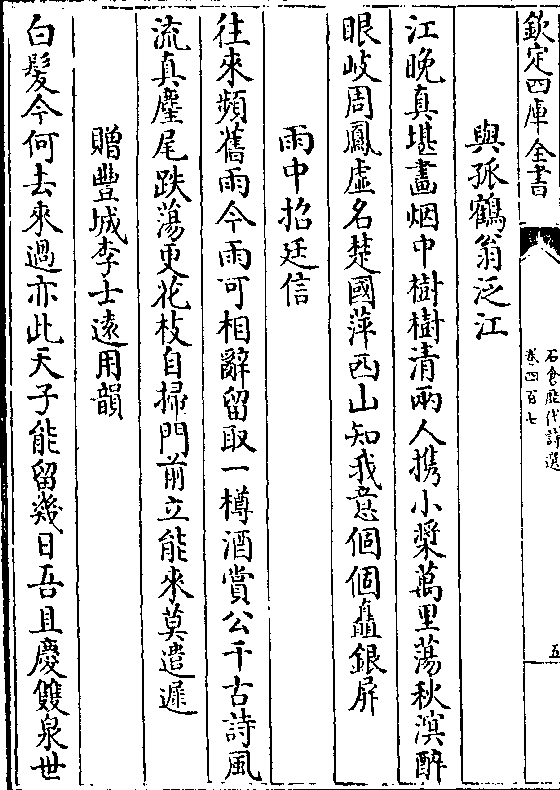 欽定四庫全書
石倉歷代詩選
卷四百七
五
與孤鶴翁泛江
江晚真堪畫烟中樹樹清兩人携小槳萬里蕩秋溟醉
眼岐周鳳虛名楚國萍西山知我意個個矗銀屏
雨中招廷信
往來頻舊雨今雨可相辭留取一樽酒賞公千古詩風
流真麈尾跌蕩更花枝自掃門前立能來莫遣遲
贈豐城李士遠用韻
白髮今何去來過亦此天子能留幾日吾且慶雙泉世